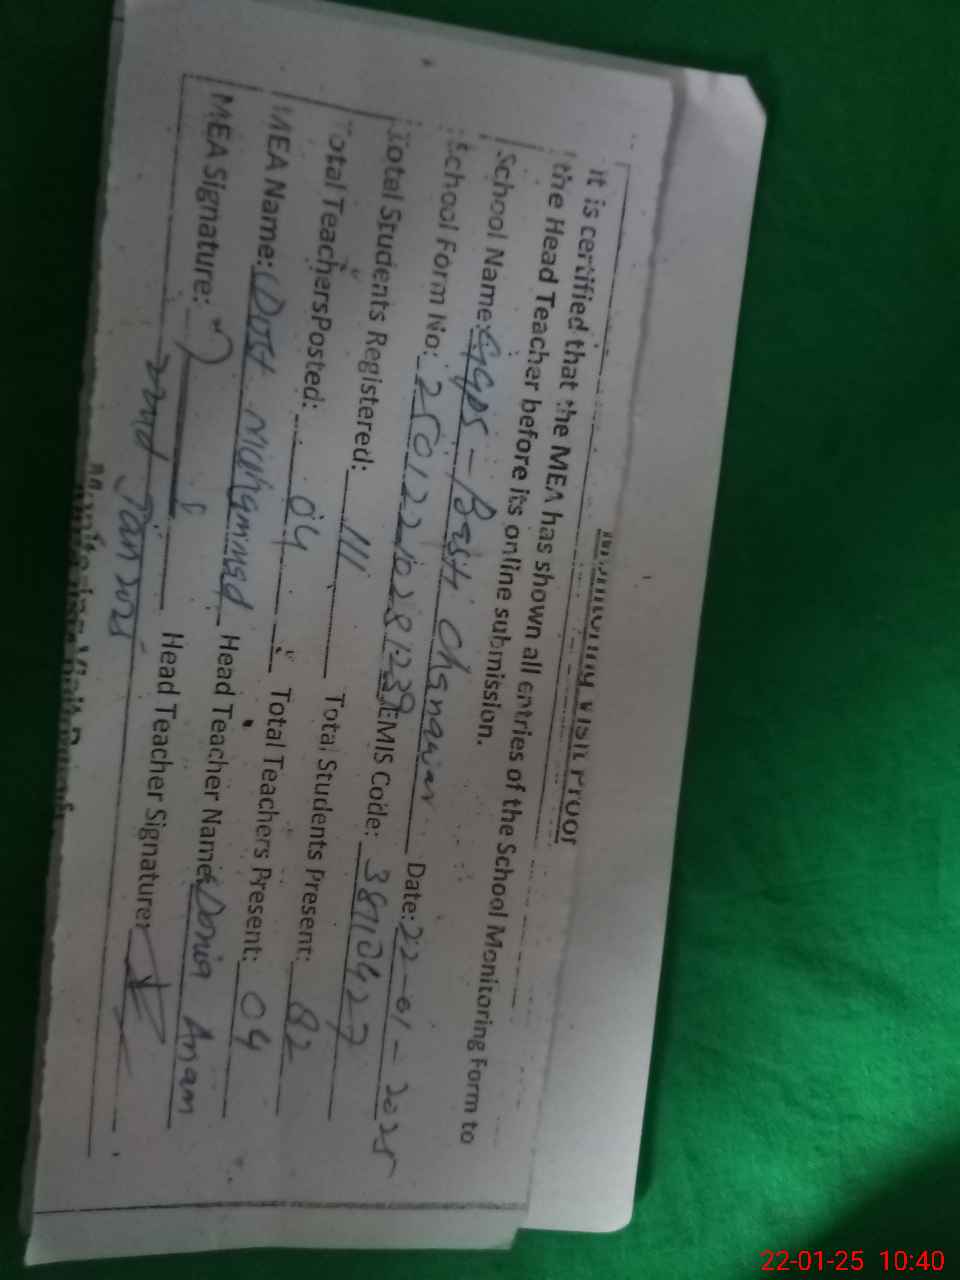 Monitoring Visit Proof
It is certified that the MEA has shown all entries of the School Monitoring Form to
the Head Teacher before its online submission.
School Name: GGPS - Basti Chanawar Date: 22-01-2025
School Form No: 25012210281239 EMIS Code: 38110427
Total Students Registered: 111 Total Students Present: 82
Total TeachersPosted: 04 Total Teachers Present: 04
MEA Name: Dost Muhammad Head Teacher Name: Donia Anam
MEA Signature: Head Teacher Signature:
22nd Jan 2025
Monitoring Visit Proof
22-01-25 10:40